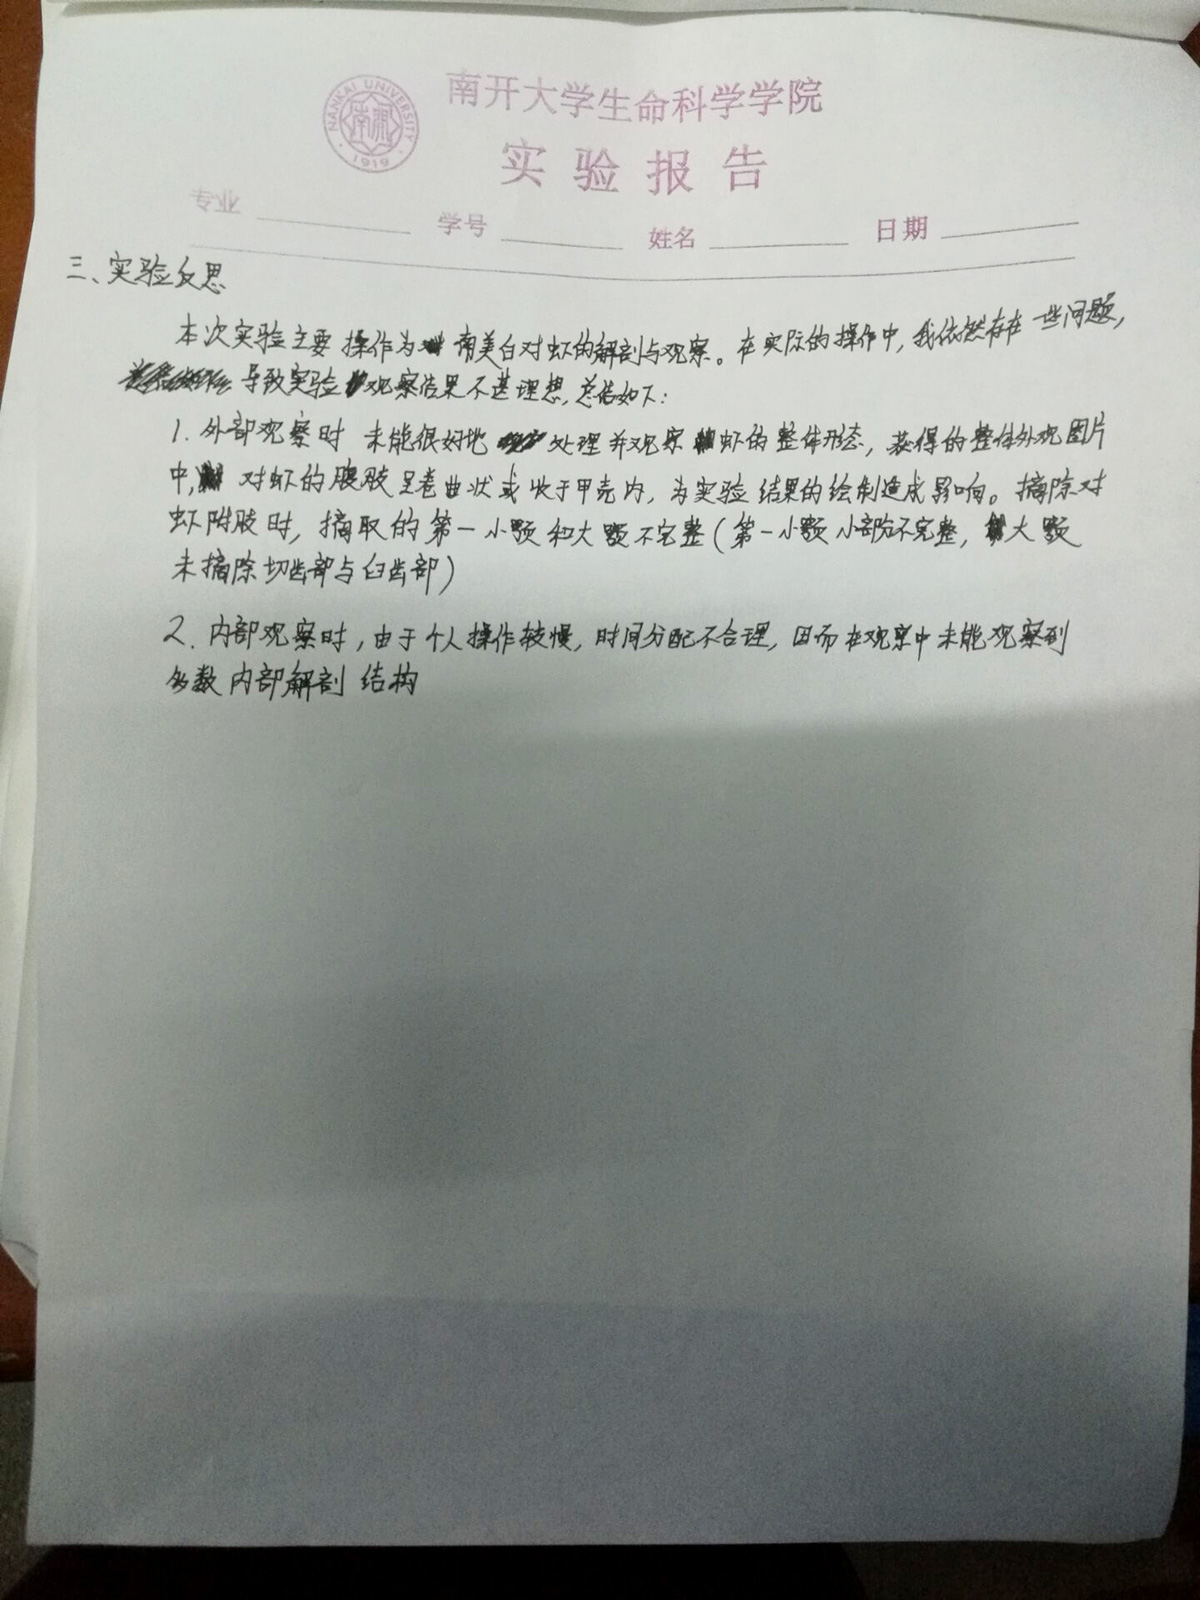 NANKAI UNIVERSITY
1919
南开大学生命科学学院
实验报告
专业 学号 姓名 日期
三、实验反思
本次实验主要操作为南美白对虾的解剖与观察。在实际的操作中,我依然存在一些问题,
导致实验观察结果不甚理想,总结如下:
1. 外部观察时 未能很好地处理并观察虾的整体形态,获得的整体外观图片
中,对虾的腹肢呈卷曲状或收于甲壳内,为实验结果的绘制造成影响。摘除对
虾附肢时,摘取的第一小颚和大颚不完整(第一小颚小部分不完整,大颚
未摘除切齿部与臼齿部)
2. 内部观察时,由于个人操作较慢,时间分配不合理,因而在观察中未能观察到
多数内部解剖结构